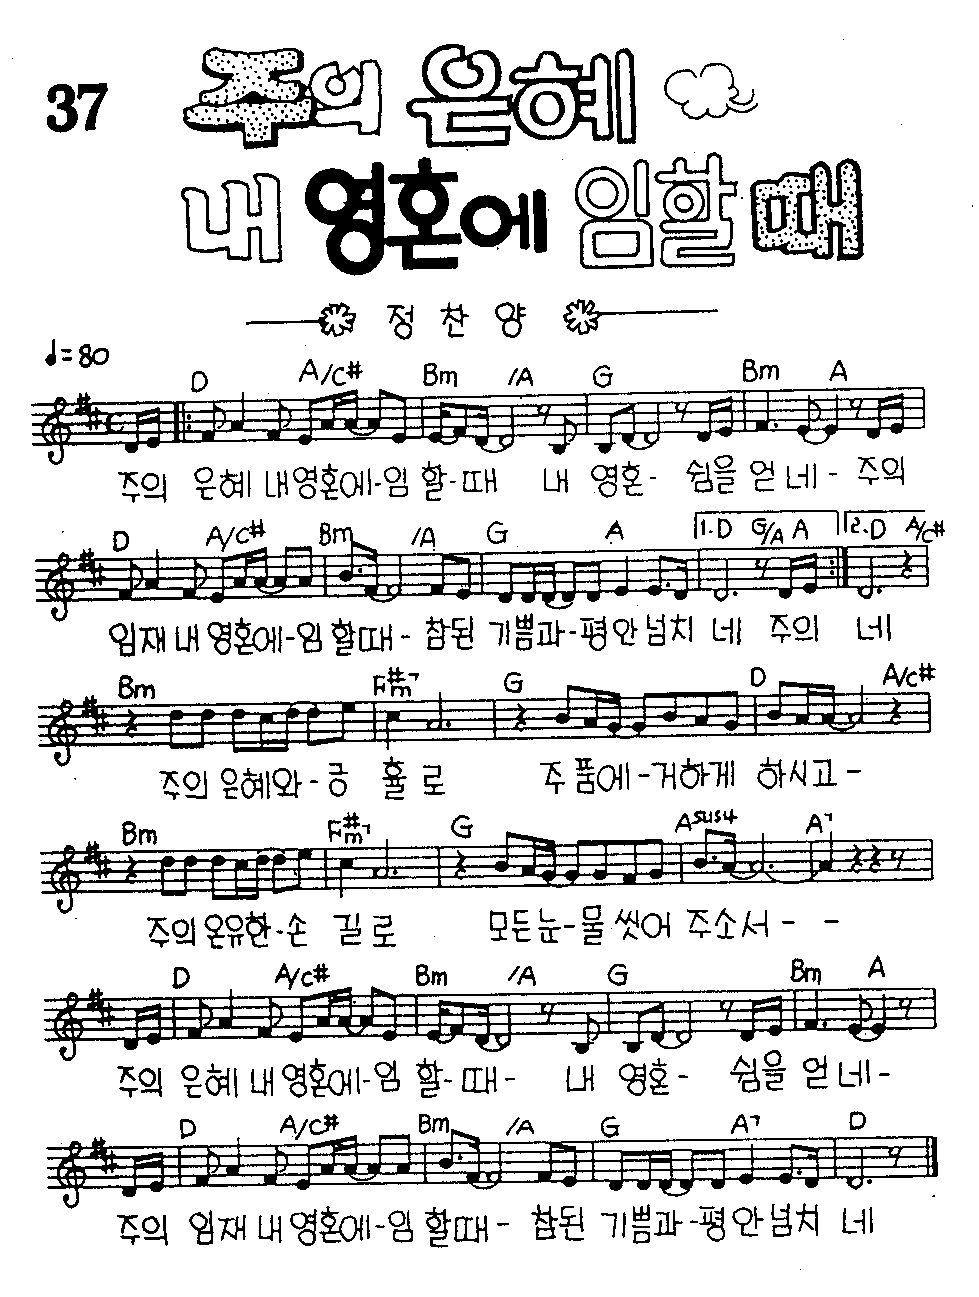 37 주의 은혜
내 영혼에 임할 때
정 찬 양
♩=80
D A/C# Bm /A G Bm A
주의 은혜 내영혼에-임 할-때 내 영혼- 쉼을 얻 네- 주의
D A/C# Bm /A G A 1.D G/A A 2.D A/C#
임재 내 영혼에-임 할때- 참된 기쁨과-평안 넘치 네 주의 네
Bm F#m7 G D A/C#
주의 은혜와-긍 휼 로 주 품에-거하게 하시고-
Bm F#m7 G Asus4 A7
주의 온유한-손 길 로 모든 눈-물 씻어 주소서- -
D A/C# Bm /A G Bm A
주의 은혜 내 영혼에-임 할-때- 내 영혼- 쉼을 얻 네-
D A/C# Bm /A G A7 D
주의 임재 내 영혼에-임 할때- 참된 기쁨과-평안 넘치 네